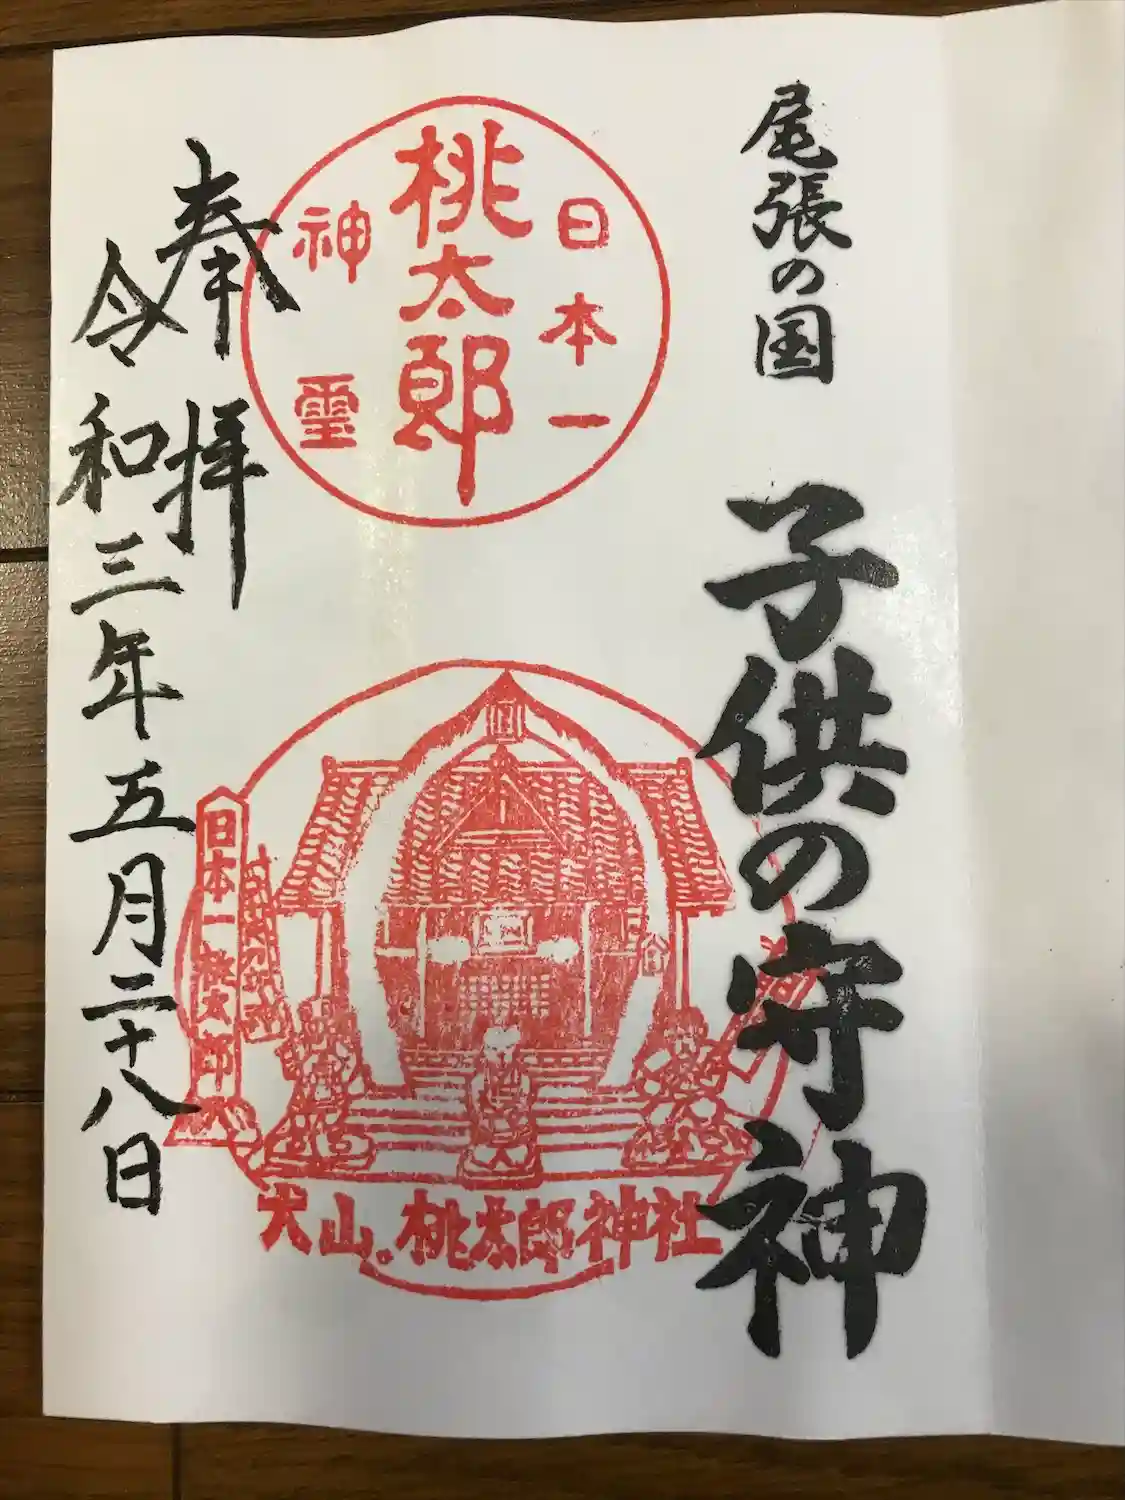 尾張の国
子供の守神
日本一
桃太郎
神霊
奉拝
令和三年五月二十八日
日本一桃太郎
犬山。桃太郎神社